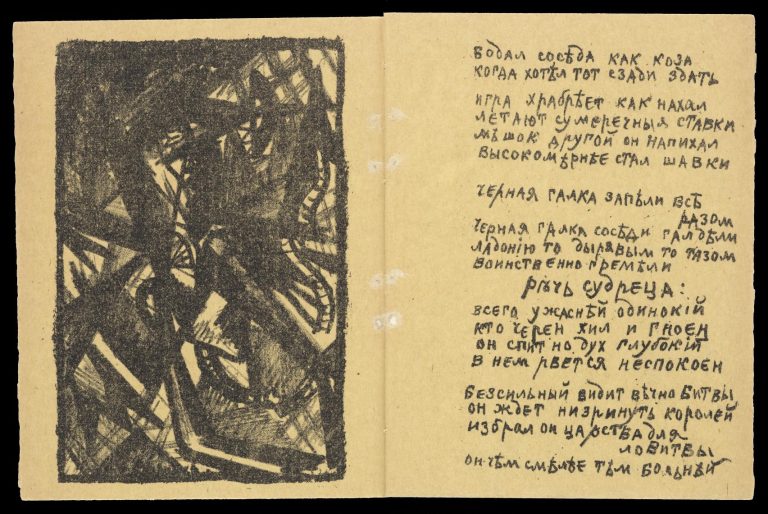 бодал сосѣда как коза
когда хотѣл тот сзади здать
игра храбрѣет как нахал
летают сумеречныя ставки
мѣшок другой он напихал
высокомѣрнѣе стал шавки
черная галка запѣли всѣ
разом
черная галка сосѣди галдѣли
ладонію то дырявым то тазом
воинственно гремѣли
рѣчь судреца:
всего ужаснѣй одинокій
кто черен хил и гноен
он спит но дух глубокій
в нем рвется неспокоен
безсильный видит вѣчно битвы
он ждет низринуть королей
избрал он царства для
ловитвы
он чѣм смѣлѣе тѣм больнѣй